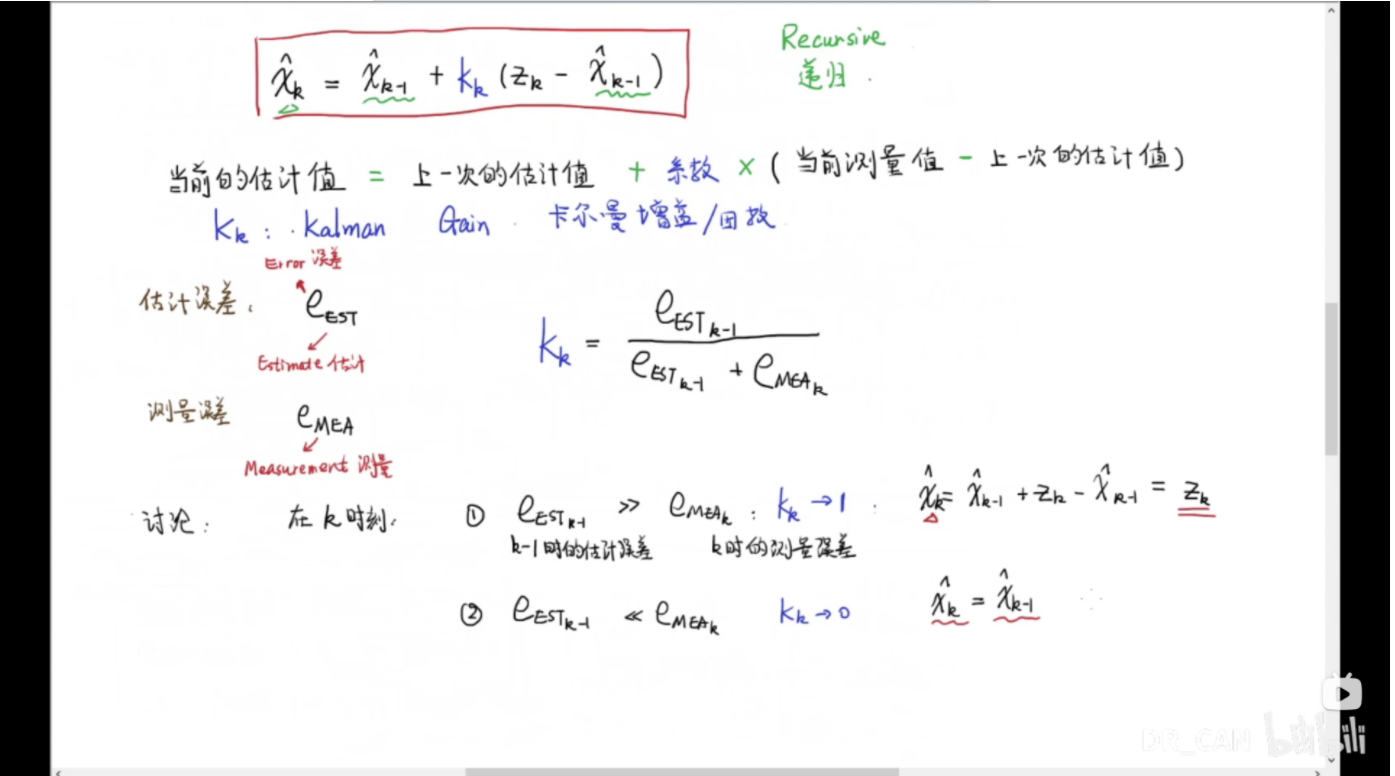 x̂ₖ = x̂ₖ₋₁ + kₖ (zₖ - x̂ₖ₋₁)
Recursive
递归.
当前的估计值 = 上一次的估计值 + 系数 × (当前测量值 - 上一次的估计值)
kₖ: Kalman Gain. 卡尔曼增益/因数
Error 误差
估计误差: e_EST
Estimate 估计
kₖ = e_ESTₖ₋₁ / (e_ESTₖ₋₁ + e_MEAₖ)
测量误差 e_MEA
Measurement 测量
讨论: 在k时刻: ① e_ESTₖ₋₁ >> e_MEAₖ: kₖ→1. x̂ₖ = x̂ₖ₋₁ + zₖ - x̂ₖ₋₁ = zₖ
k-1时的估计误差 k时的测量误差
② e_ESTₖ₋₁ << e_MEAₖ kₖ→0 x̂ₖ = x̂ₖ₋₁
DR_CAN bilibili